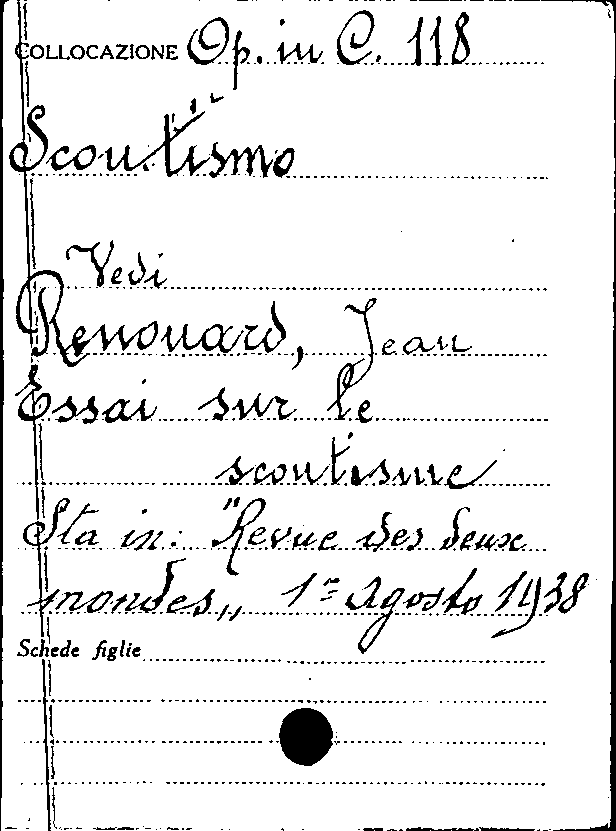 COLLOCAZIONE Op. in C. 118
Scoutismo
Vedi
Renouard, Jean
Essai sur le
scoutisme
Sta in: "Revue des deux
mondes,, 1= Agosto 1938
Schede figlie